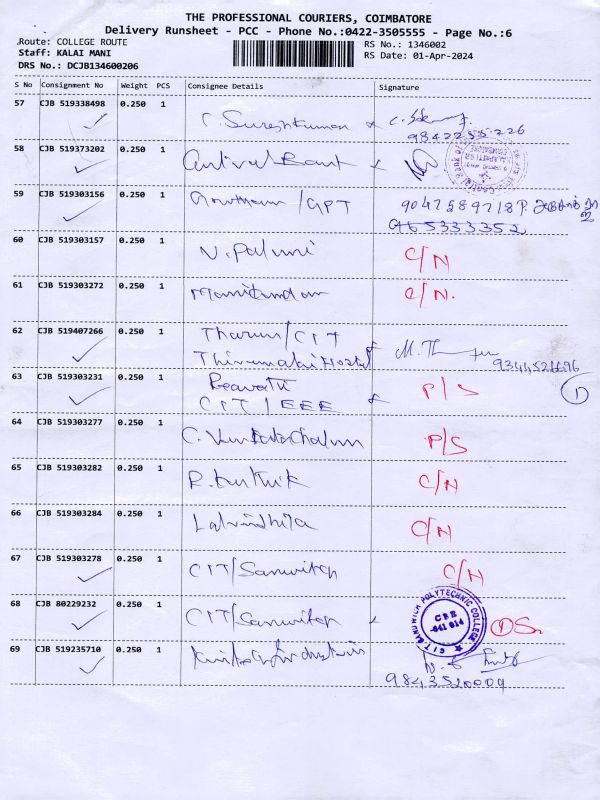 THE PROFESSIONAL COURIERS, COIMBATORE
Delivery Runsheet - PCC - Phone No.:0422-3505555 - Page No.:6
Route: COLLEGE ROUTE
Staff: KALAI MANI
DRS No.: DCJB134600206
RS No.: 1346002
RS Date: 01-Apr-2024
S No Consignment No Weight PCS Consignee Details Signature
57 CJB 519338498 0.250 1 C. Sureshkumar
9842255226
58 CJB 519373202 0.250 1
59 CJB 519303156 0.250 1 Gowtham/GPT 9047589718
9165333352
60 CJB 519303157 0.250 1 N. Palani C/N
61 CJB 519303272 0.250 1 C/N.
62 CJB 519407266 0.250 1 Tharun/CIT
Thirumalai Hostel 9344521696
63 CJB 519303231 0.250 1 Revathi P/S 1
CIT/EEE
64 CJB 519303277 0.250 1 C. Venkatachalam P/S
65 CJB 519303282 0.250 1 R. Karthik C/N
66 CJB 519303284 0.250 1 C/N
67 CJB 519303278 0.250 1 CIT/Sanwitch C/N
68 CJB 80229232 0.250 1 CIT/Sanwitch
CIT SANDWICH POLYTECHNIC COLLEGE
CBE
-641 014
69 CJB 519235710 0.250 1
9843520009